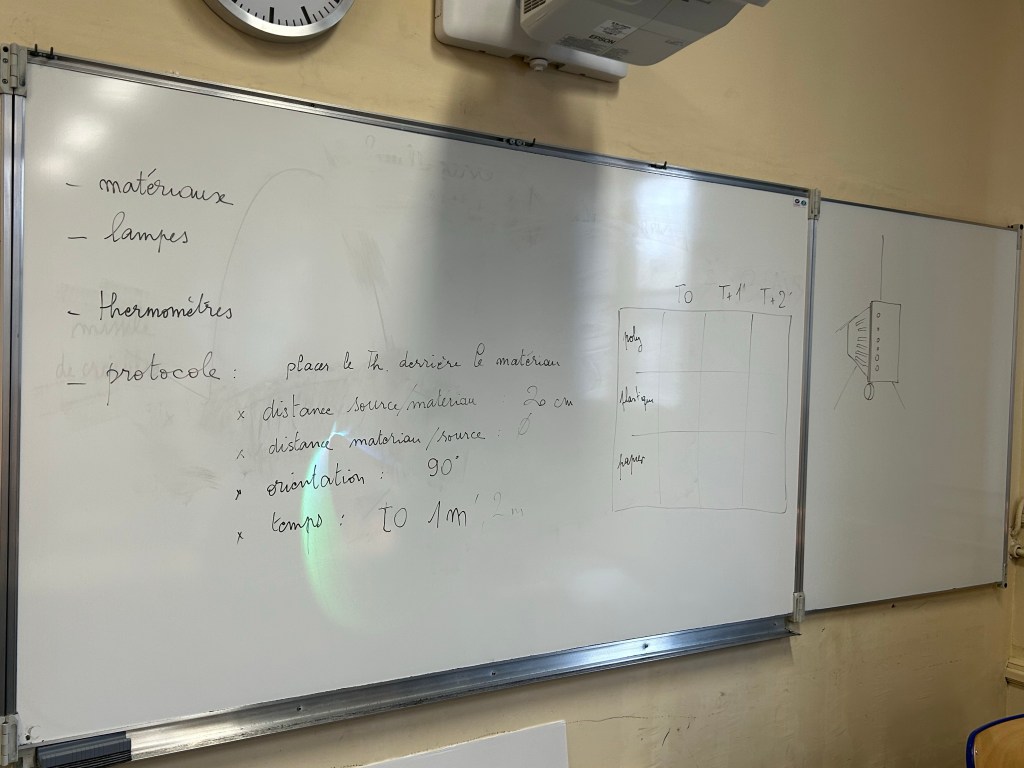 EPSON
- matériaux
- lampes
- thermomètres
- protocole : placer le Th. derrière le matériau
x distance source/matériau : 20 cm
x distance materiau/source : Ø
x orientation : 90°
x temps : T0 1m 2m
T0 T+1' T+2'
poly
plastique
papier